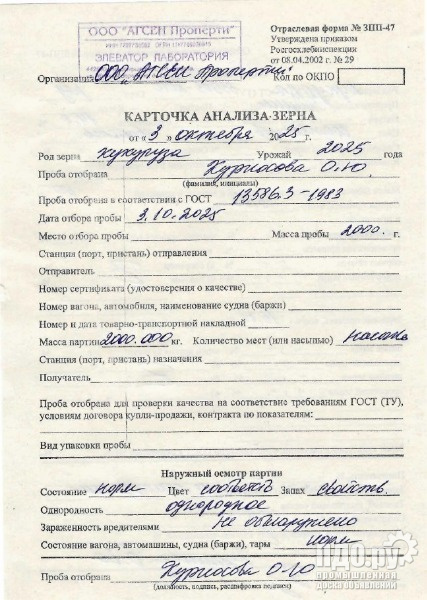 ООО "АГСЕН Проперти"
ЭЛЕВАТОР ЛАБОРАТОРИЯ
Отраслевая форма № ЗПП-47
Утверждена приказом
Росгосхлебинспекции
от 08.04.2002 г. № 29
Организация ООО "Агсен Проперти" Код по ОКПО
КАРТОЧКА АНАЛИЗА ЗЕРНА
от « 3 » октября 2025 г.
Род зерна кукуруза Урожай 2025 года
Проба отобрана О.Ю.
(фамилия, инициалы)
Проба отобрана в соответствии с ГОСТ 13586.3-1983
Дата отбора пробы 3.10.2025
Место отбора пробы Масса пробы 2000. г.
Станция (порт, пристань) отправления
Отправитель
Номер сертификата (удостоверения о качестве)
Номер вагона, автомобиля, наименование судна (баржи)
Номер и дата товарно-транспортной накладной
Масса партии 2000.000 кг. Количество мест (или насыпью)
Станция (порт, пристань) назначения
Получатель
Проба отобрана для проверки качества на соответствие требованиям ГОСТ (ТУ),
условиям договора купли-продажи, контракта по показателям:
Вид упаковки пробы
Наружный осмотр партии
Состояние норм Цвет Запах свойств.
Однородность однородное
Зараженность вредителями не обнаружено
Состояние вагона, автомашины, судна (баржи), тары норм
Проба отобрана О.Ю
(должность, подпись, расшифровка подписи)
ПДО.ру
промышленная
доска объявлений